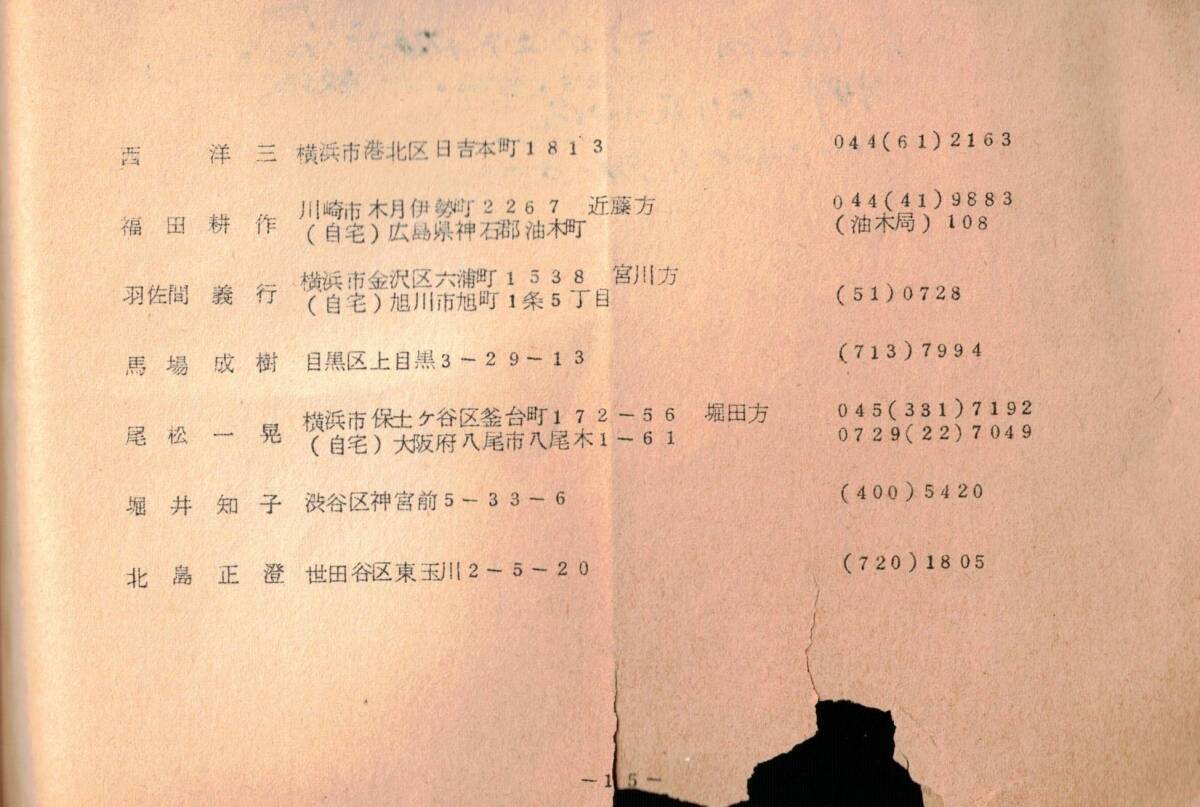 西洋三 横浜市港北区日吉本町1813 044(61)2163
川崎市木月伊勢町2267 近藤方 044(41)9883
福田耕作 (自宅)広島県神石郡油木町 (油木局)108
横浜市金沢区六浦町1538 宮川方
羽佐間義行 (自宅)旭川市旭町1条5丁目 (51)0728
馬場成樹 目黒区上目黒3-29-13 (713)7994
横浜市保土ケ谷区釜台町172-56 堀田方 045(331)7192
尾松一晃 (自宅)大阪府八尾市八尾木1-61 0729(22)7049
堀井知子 渋谷区神宮前5-33-6 (400)5420
北島正澄 世田谷区東玉川2-5-20 (720)1805
-15-